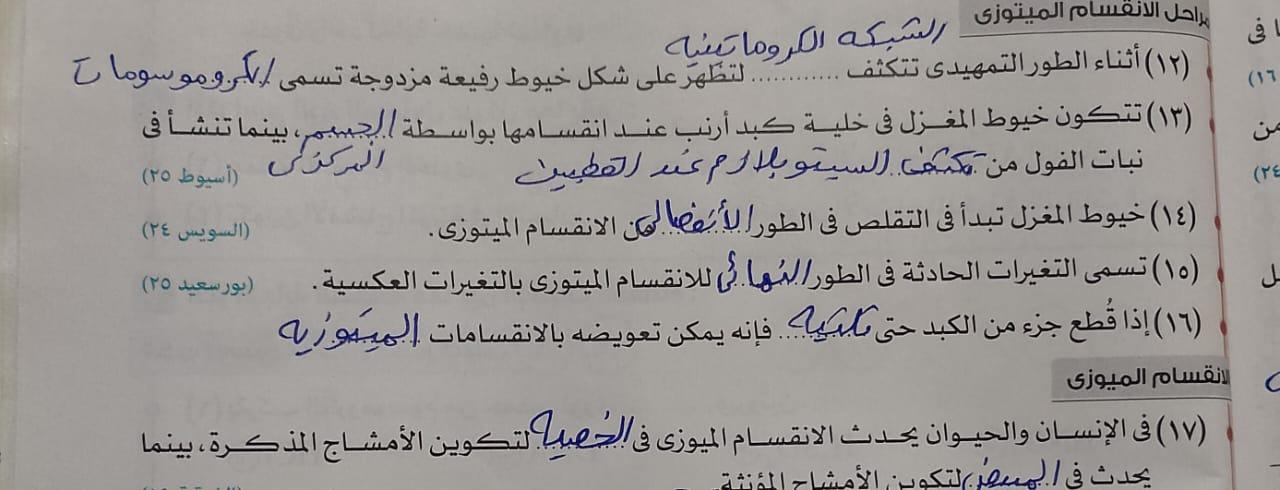 مراحل الانقسام الميتوزى
الشبكه الكروماتينيه
(١٢) أثناء الطور التمهيدى تتكثف ............ لتظهر على شكل خيوط رفيعة مزدوجة تسمى الكروموسومات
(١٣) تتكون خيوط المغزل فى خلية كبد أرنب عند انقسامها بواسطة الجسم، بينما تنشأ فى
نبات الفول من تكثف السيتوبلازم عند القطبين المركزى (أسيوط ٢٥)
(١٤) خيوط المغزل تبدأ فى التقلص فى الطور الأنفصالى من الانقسام الميتوزى. (السويس ٢٤)
(١٥) تسمى التغيرات الحادثة فى الطور النهائى للانقسام الميتوزى بالتغيرات العكسية. (بورسعيد ٢٥)
(١٦) إذا قُطع جزء من الكبد حتى ثلثيه فإنه يمكن تعويضه بالانقسامات الميتوزيه
الانقسام الميوزى
(١٧) فى الإنسان والحيوان يحدث الانقسام الميوزى فى الخصيه لتكوين الأمشاج المذكرة، بينما
يحدث فى المبيض لتكوين الأمشاج المؤنثة.